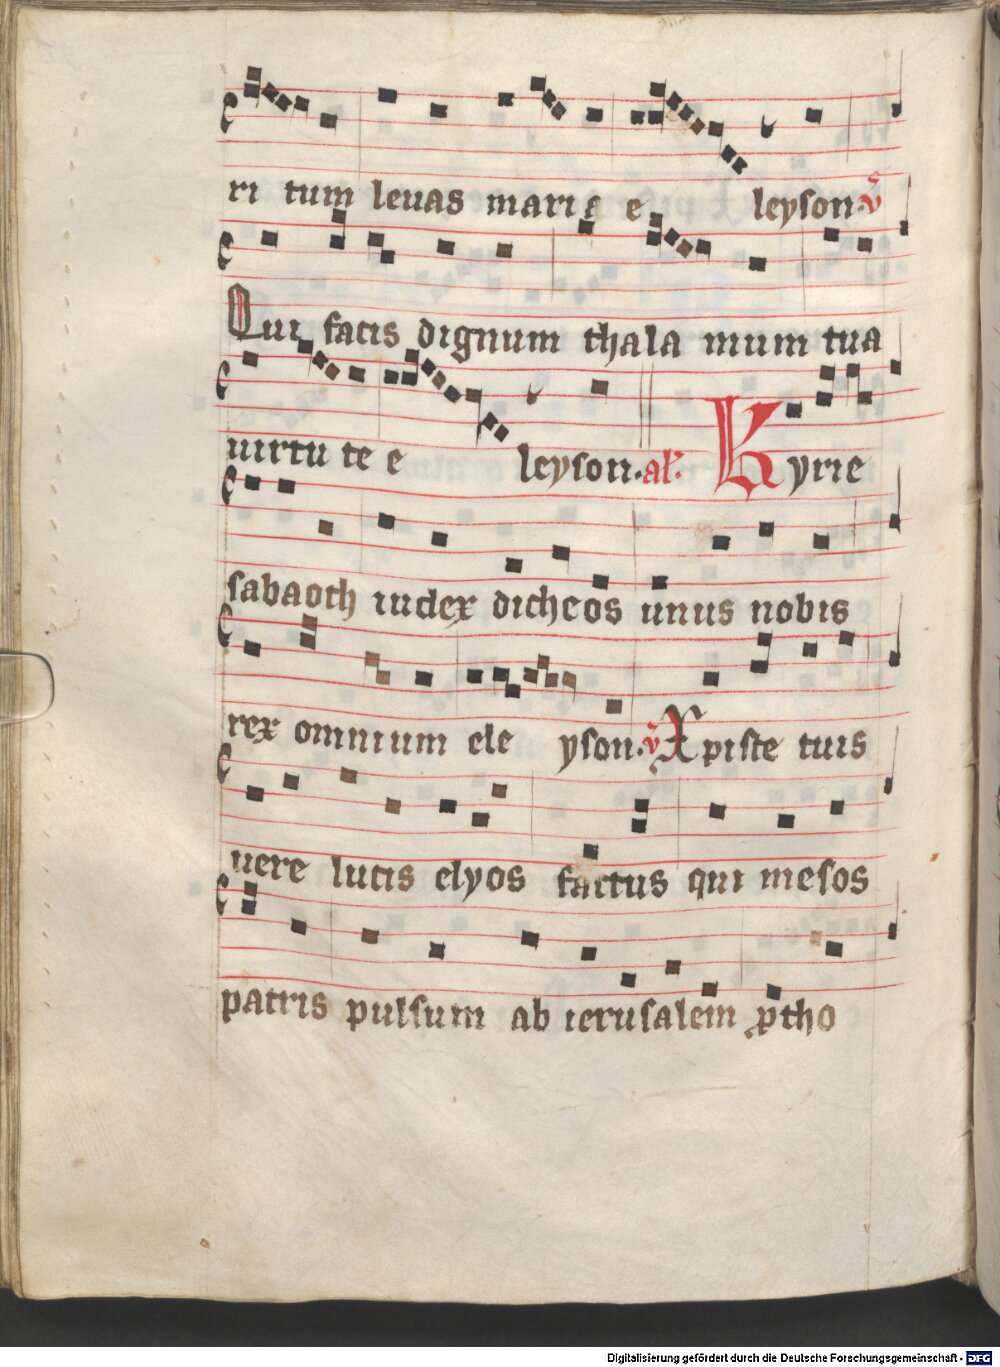 ri tum leuas marie e leyson. v
Qui facis dignum thala mum tua
uirtu te e leyson. al'. Kyrie
sabaoth iudex dicheos unus nobis
rex omnium ele yson. v Xpiste tuis
uere lucis elyos factus qui mesos
patris pulsum ab ierusalem ptho
Digitalisierung gefördert durch die Deutsche Forschungsgemeinschaft - DFG